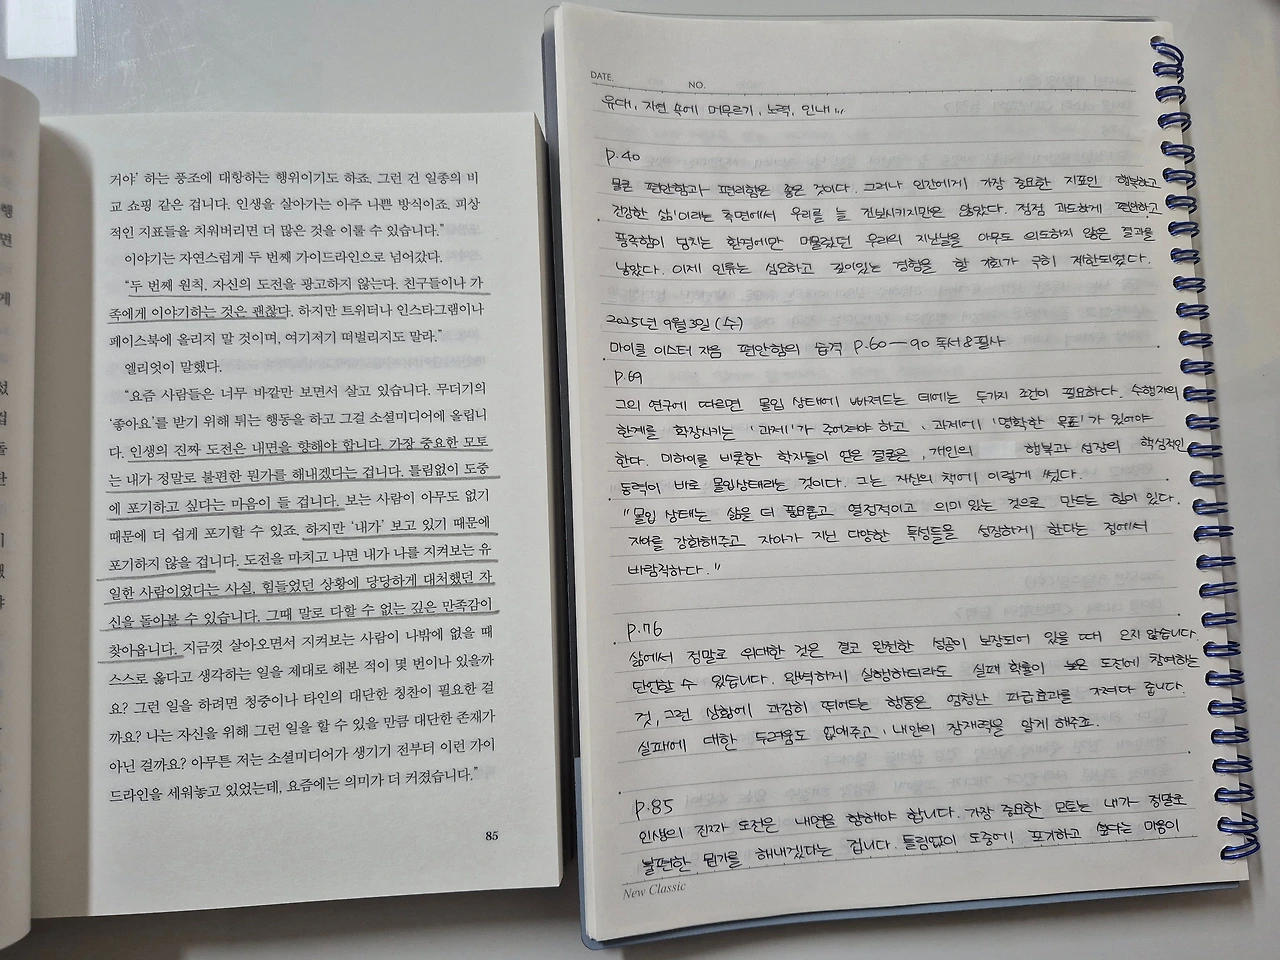 거야’ 하는 풍조에 대항하는 행위이기도 하죠. 그런 건 일종의 비
교 쇼핑 같은 겁니다. 인생을 살아가는 아주 나쁜 방식이죠. 피상
적인 지표들을 치워버리면 더 많은 것을 이룰 수 있습니다.”
이야기는 자연스럽게 두 번째 가이드라인으로 넘어갔다.
“두 번째 원칙, 자신의 도전을 광고하지 않는다. 친구들이나 가
족에게 이야기하는 것은 괜찮다. 하지만 트위터나 인스타그램이나
페이스북에 올리지 말 것이며, 여기저기 떠벌리지도 말라.”
엘리엇이 말했다.
“요즘 사람들은 너무 바깥만 보면서 살고 있습니다. 무더기의
‘좋아요’를 받기 위해 튀는 행동을 하고 그걸 소셜미디어에 올립니
다. 인생의 진짜 도전은 내면을 향해야 합니다. 가장 중요한 모토
는 내가 정말로 불편한 뭔가를 해내겠다는 겁니다. 틀림없이 도중
에 포기하고 싶다는 마음이 들 겁니다. 보는 사람이 아무도 없기
때문에 더 쉽게 포기할 수 있죠. 하지만 ‘내가’ 보고 있기 때문에
포기하지 않을 겁니다. 도전을 마치고 나면 내가 나를 지켜보는 유
일한 사람이었다는 사실, 힘들었던 상황에 당당하게 대처했던 자
신을 돌아볼 수 있습니다. 그때 말로 다할 수 없는 깊은 만족감이
찾아옵니다. 지금껏 살아오면서 지켜보는 사람이 나밖에 없을 때
스스로 옳다고 생각하는 일을 제대로 해본 적이 몇 번이나 있을까
요? 그런 일을 하려면 청중이나 타인의 대단한 칭찬이 필요한 걸
까요? 나는 자신을 위해 그런 일을 할 수 있을 만큼 대단한 존재가
아닌 걸까요? 아무튼 저는 소셜미디어가 생기기 전부터 이런 가이
드라인을 세워놓고 있었는데, 요즘에는 의미가 더 커졌습니다.”
85
DATE. NO.
유대, 자연 속에 머무르기, 노력, 인내...
P.40
물론 편안함과 편리함은 좋은 것이다. 그러나 인간에게 가장 중요한 지표인 '행복하고
건강한 삶'이라는 측면에서 우리를 늘 진보시키지만은 않았다. 점점 과도하게 편안하고
풍족함이 넘치는 환경에만 머물렀던 우리의 지난날을 아무도 의도하지 않은 결과를
낳았다. 이제 인류는 심오하고 깊이있는 경험을 할 기회가 극히 제한되었다.
2025년 9월 3일 (수)
마이클 이스터 지음 편안함의 습격 P.60—90 독서&필사
P.69
그의 연구에 따르면 몰입 상태에 빠져드는 데에는 두가지 조건이 필요하다. 수행자의
한계를 확장시키는 '과제'가 주어져야 하고, 과제에 '명확한 목표'가 있어야
한다. 미하이를 비롯한 학자들이 얻은 결론은, 개인의 행복과 성장의 핵심적인
동력이 바로 몰입상태라는 것이다. 그는 자신의 책에 이렇게 썼다.
"몰입 상태는 삶을 더 풍요롭고 열정적이고 의미 있는 것으로 만드는 힘이 있다.
자아를 강화해주고 자아가 지닌 다양한 특성들을 성장하게 한다는 점에서
바람직하다."
P.76
삶에서 정말로 위대한 것은 결코 완전한 성공이 보장되어 있을 때 오지 않습니다.
단언할 수 있습니다. 완벽하게 실행하더라도 실패 확률이 높은 도전에 참여하는
것, 그런 상황에 과감히 뛰어드는 행동은 엄청난 파급효과를 가져다 줍니다.
실패에 대한 두려움도 없애주고, 내안의 잠재력을 알게 해주죠.
P.85
인생의 진짜 도전은 내면을 향해야 합니다. 가장 중요한 모토는 내가 정말로
불편한 뭔가를 해내겠다는 겁니다. 틀림없이 도중에 포기하고 싶다는 마음이
New Classic